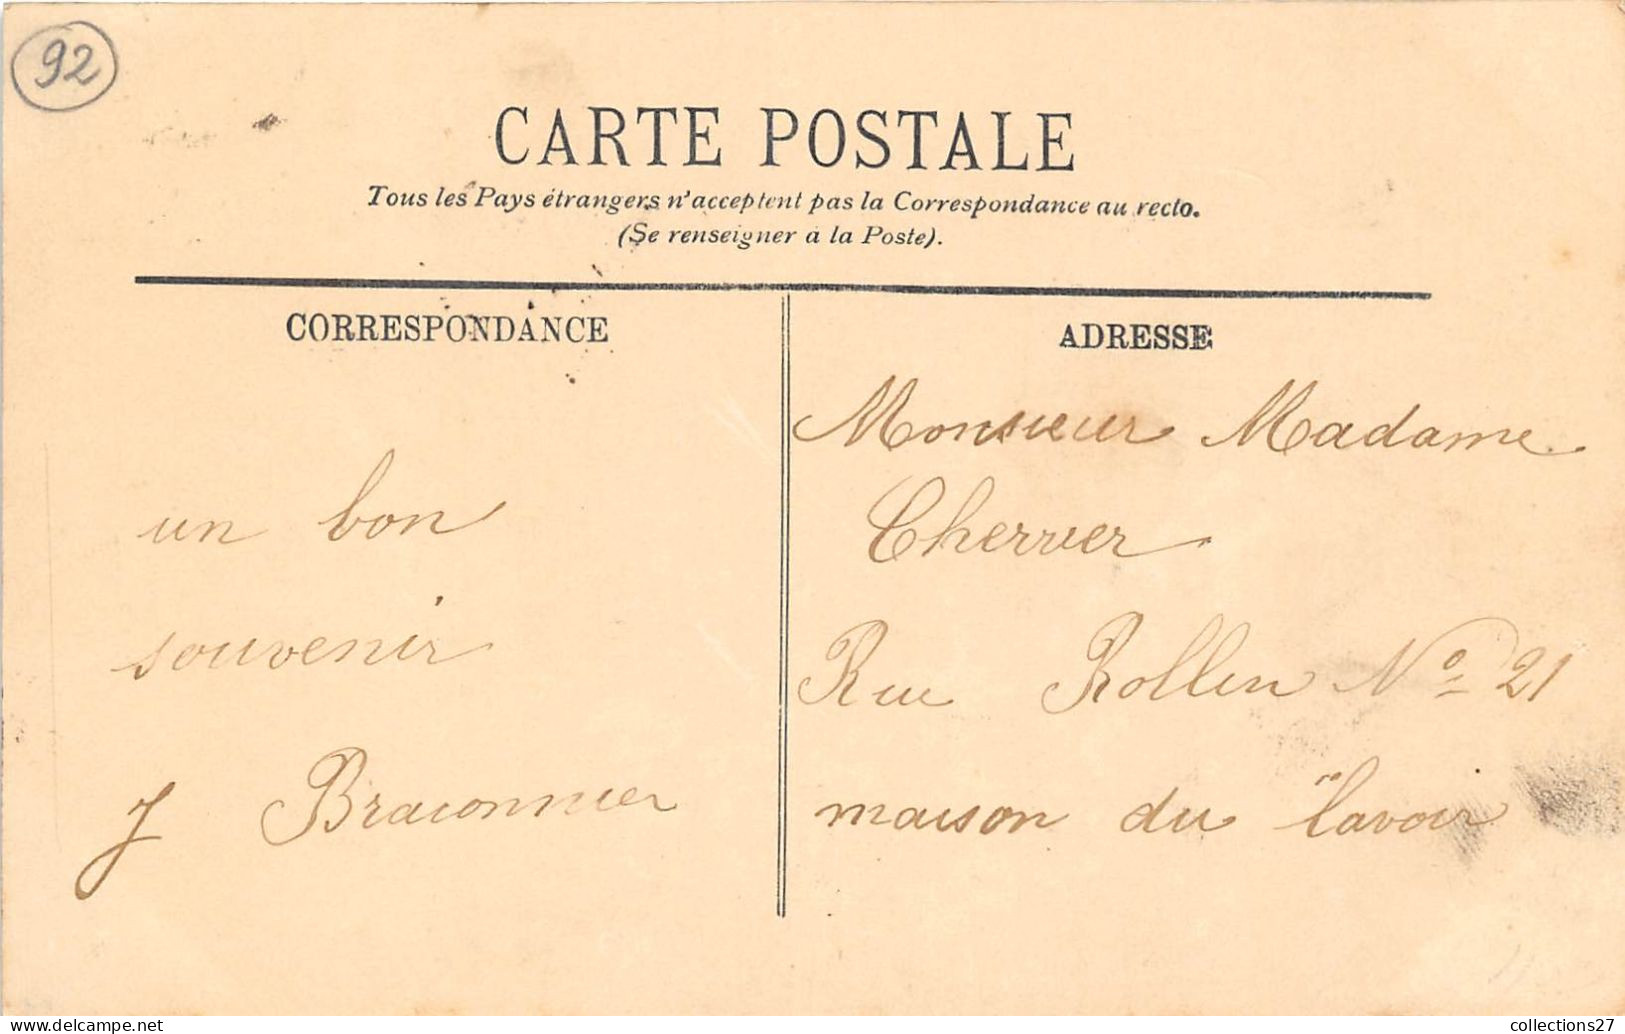 92
CARTE POSTALE
Tous les Pays étrangers n'acceptent pas la Correspondance au recto.
(Se renseigner à la Poste).
CORRESPONDANCE
un bon
souvenir
J Braconnier
ADRESSE
Monsieur Madame
Cherrier
Rue Rollin No 21
maison du lavoir
delcampe.net
collections27